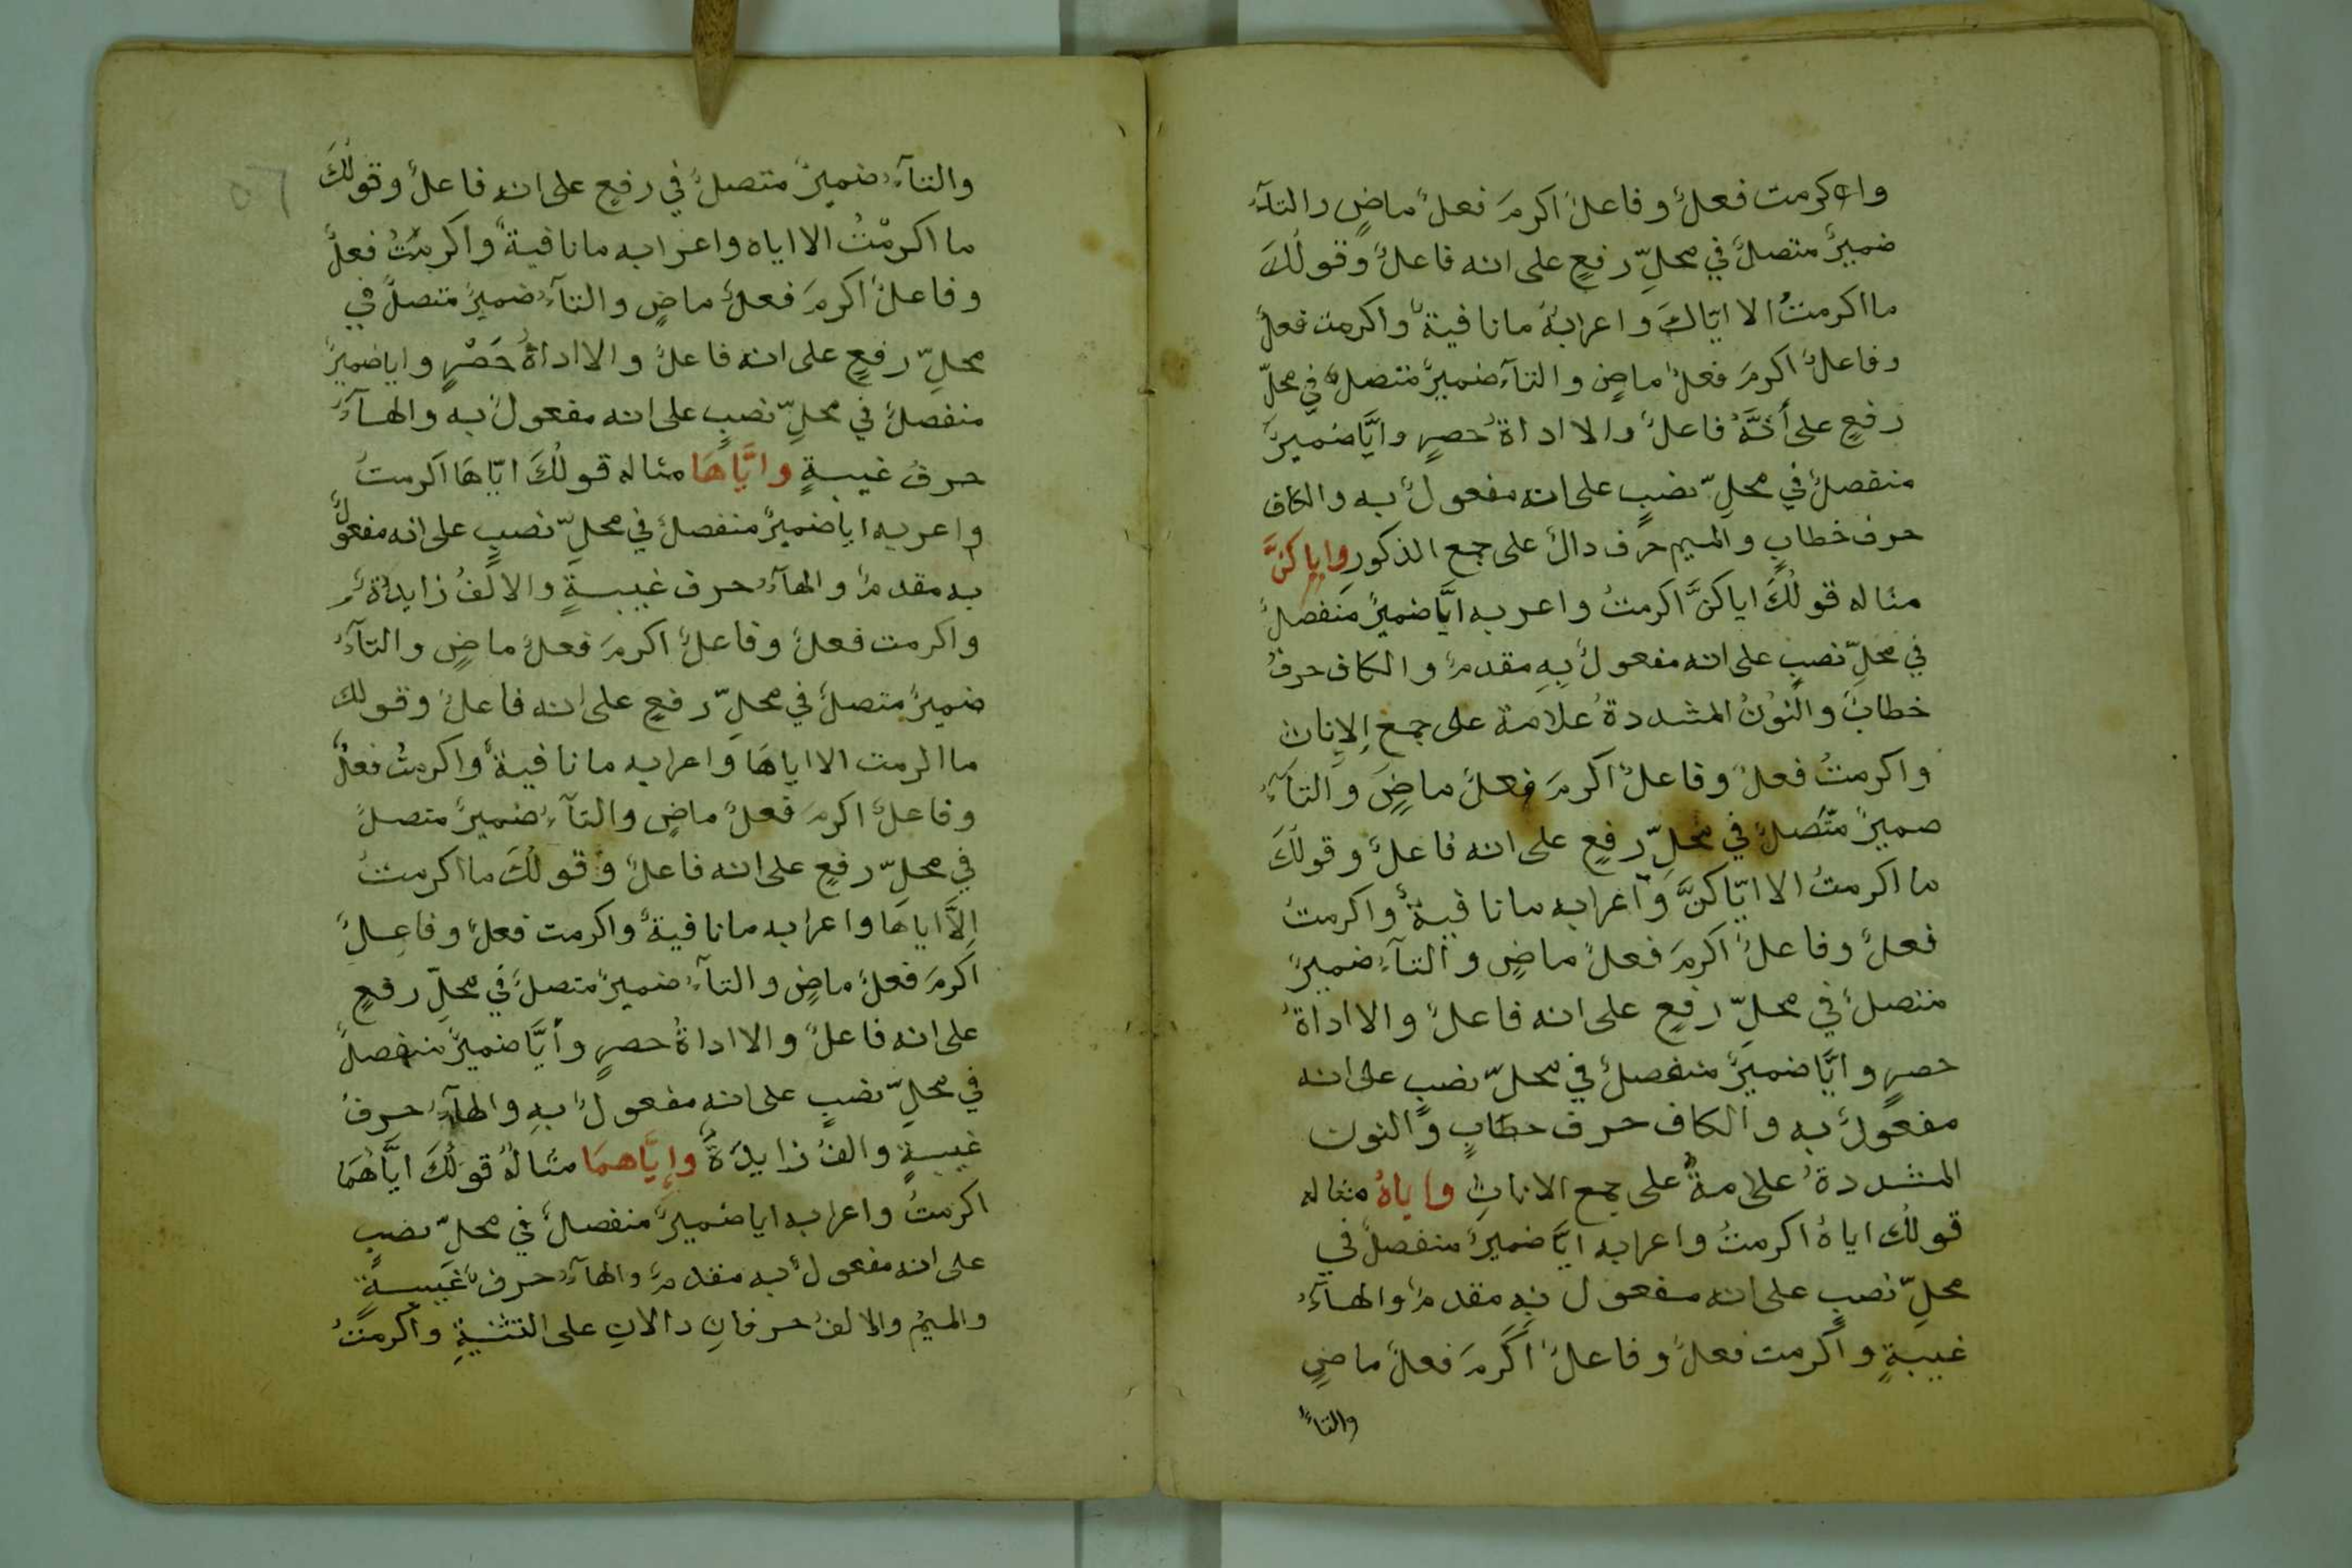 واكرمت فعلٌ وفاعلٌ اكرمَ فعلٌ ماضٍ والتآءُ
ضميرٌ متصلٌ في محلِّ رفعٍ على انه فاعلٌ وقولُكَ
ما اكرمتُ الا ايّاكَ واعرابهُ ما نافيةٌ واكرمت فعلٌ
وفاعلٌ اكرمَ فعلٌ ماضٍ والتآءُ ضميرٌ متصلٌ في محلّ
رفعٍ على أنَّهُ فاعلٌ والا اداةُ حصرٍ وايَّا ضميرٌ
منفصلٌ في محلِّ نصبٍ على انه مفعولٌ به والكاف
حرف خطابٍ والميم حرف دالٌ على جمع الذكور واياكنَّ
مثاله قولُكَ اياكنَّ اكرمتُ واعربه ايَّا ضميرٌ منفصلٌ
في محلِّ نصبٍ على انه مفعولٌ بِهِ مقدمٌ والكاف حرفُ
خطابٍ والنوْنُ المشددةُ علامة على جمع الاِناث
واكرمتُ فعلٌ وفاعلٌ اكرمَ فعلٌ ماضٍ والتآءُ
ضميرٌ متّصلٌ في محلِّ رفعٍ على انه فاعلٌ وقولُكَ
ما اكرمتُ الا ايّاكنَّ واعرابه ما نافيةٌ واكرمتُ
فعلٌ وفاعلٌ اكرمَ فعلٌ ماضٍ والتآءُ ضميرٌ
متصلٌ في محلِّ رفعٍ على انه فاعلٌ والا اداةُ
حصرٍ وايَّا ضميرٌ منفصلٌ في محلِّ نصبٍ على انه
مفعولٌ به والكاف حرف خطابٍ والنون
المشددةُ علامةٌ على جمع الاناثِ واياهُ مثاله
قولُك اياهُ اكرمتُ واعرابه ايَّا ضميرٌ منفصلٌ في
محلِّ نصبٍ على انه مفعول بِهِ مقدمٌ والهآءُ
غيبةٍ واكرمت فعلٌ وفاعلٌ اكَرمَ فعلٌ ماضٍ
والتاءُ
٥٦
والتآءُ ضميرٌ متصلٌ في رفعٍ على انه فاعلٌ وقولُكَ
ما اكرمْتُ الا اياه واعرابه ما نافيةٌ واكرمْتُ فعلٌ
وفاعلٌ اكرمَ فعلٌ ماضٍ والتآءُ ضميرٌ متصلٌ في
محلِّ رفعٍ على انه فاعلٌ والا اداةُ حَصْرٍ وايا ضميرٌ
منفصلٌ في محلِّ نصبٍ على انه مفعولٌ به والهآءُ
حرفُ غيبةٍ وايَّاهَا مثاله قولُكَ ايّاهَا اكرمتُ
واعربه ايا ضميرٌ منفصلٌ في محلِّ نصبٍ على انه مفعولٌ
به مقدمٌ والهآءُ حرف غيبةٍ والالفُ زايدةٌ
واكرمت فعلٌ وفاعلٌ اكرمَ فعلٌ ماضٍ والتآءُ
ضميرٌ متصلٌ في محلِّ رفعٍ على انه فاعلٌ وقولك
ما اكرمت الا اياهَا واعرابه ما نافيةٌ واكرمتُ فعلٌ
وفاعلٌ اكرمَ فعلٌ ماضٍ والتآءُ ضميرٌ متصلٌ
في محلِّ رفعٍ على انه فاعلٌ وقولُكَ ما اكرمتُ
اِلاَّ اياهَا واعرابه ما نافيةٌ واكرمت فعلٌ وفاعِلٌ
اكرمَ فعلٌ ماضٍ والتآءُ ضميرٌ متصلٌ في محلِّ رفعٍ
على انه فاعلٌ والا اداةُ حصرٍ وأيَّا ضميرٌ منفصلٌ
في محلِّ نصبٍ على انه مفعولٌ بهِ والهآءُ حرفُ
غيبةٍ والفُ زايدَةٌ وإيَّاهمَا مثالهُ قولُكَ ايَّاهُمَا
اكرمتُ واعرابه ايا ضميرٌ منفصلٌ في محلِّ نصبٍ
على انه مفعولٌ به مقدمٌ والهآءُ حرف غَيبةٍ
والميمُ والالفُ حرفانِ دالانِ على التثنيةِ واكرمتُ